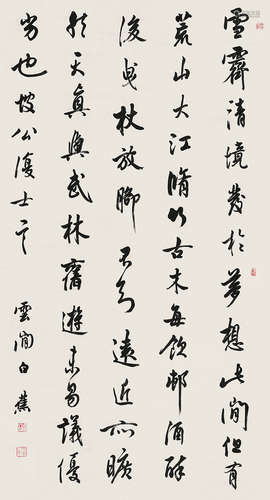 雪霽清境發於夢想此間但有
荒山大江脩竹古木每飲邨酒醉
後曳杖放腳不知遠近亦曠
然天真與武林舊遊未易議優
劣也坡公
雲間白蕉